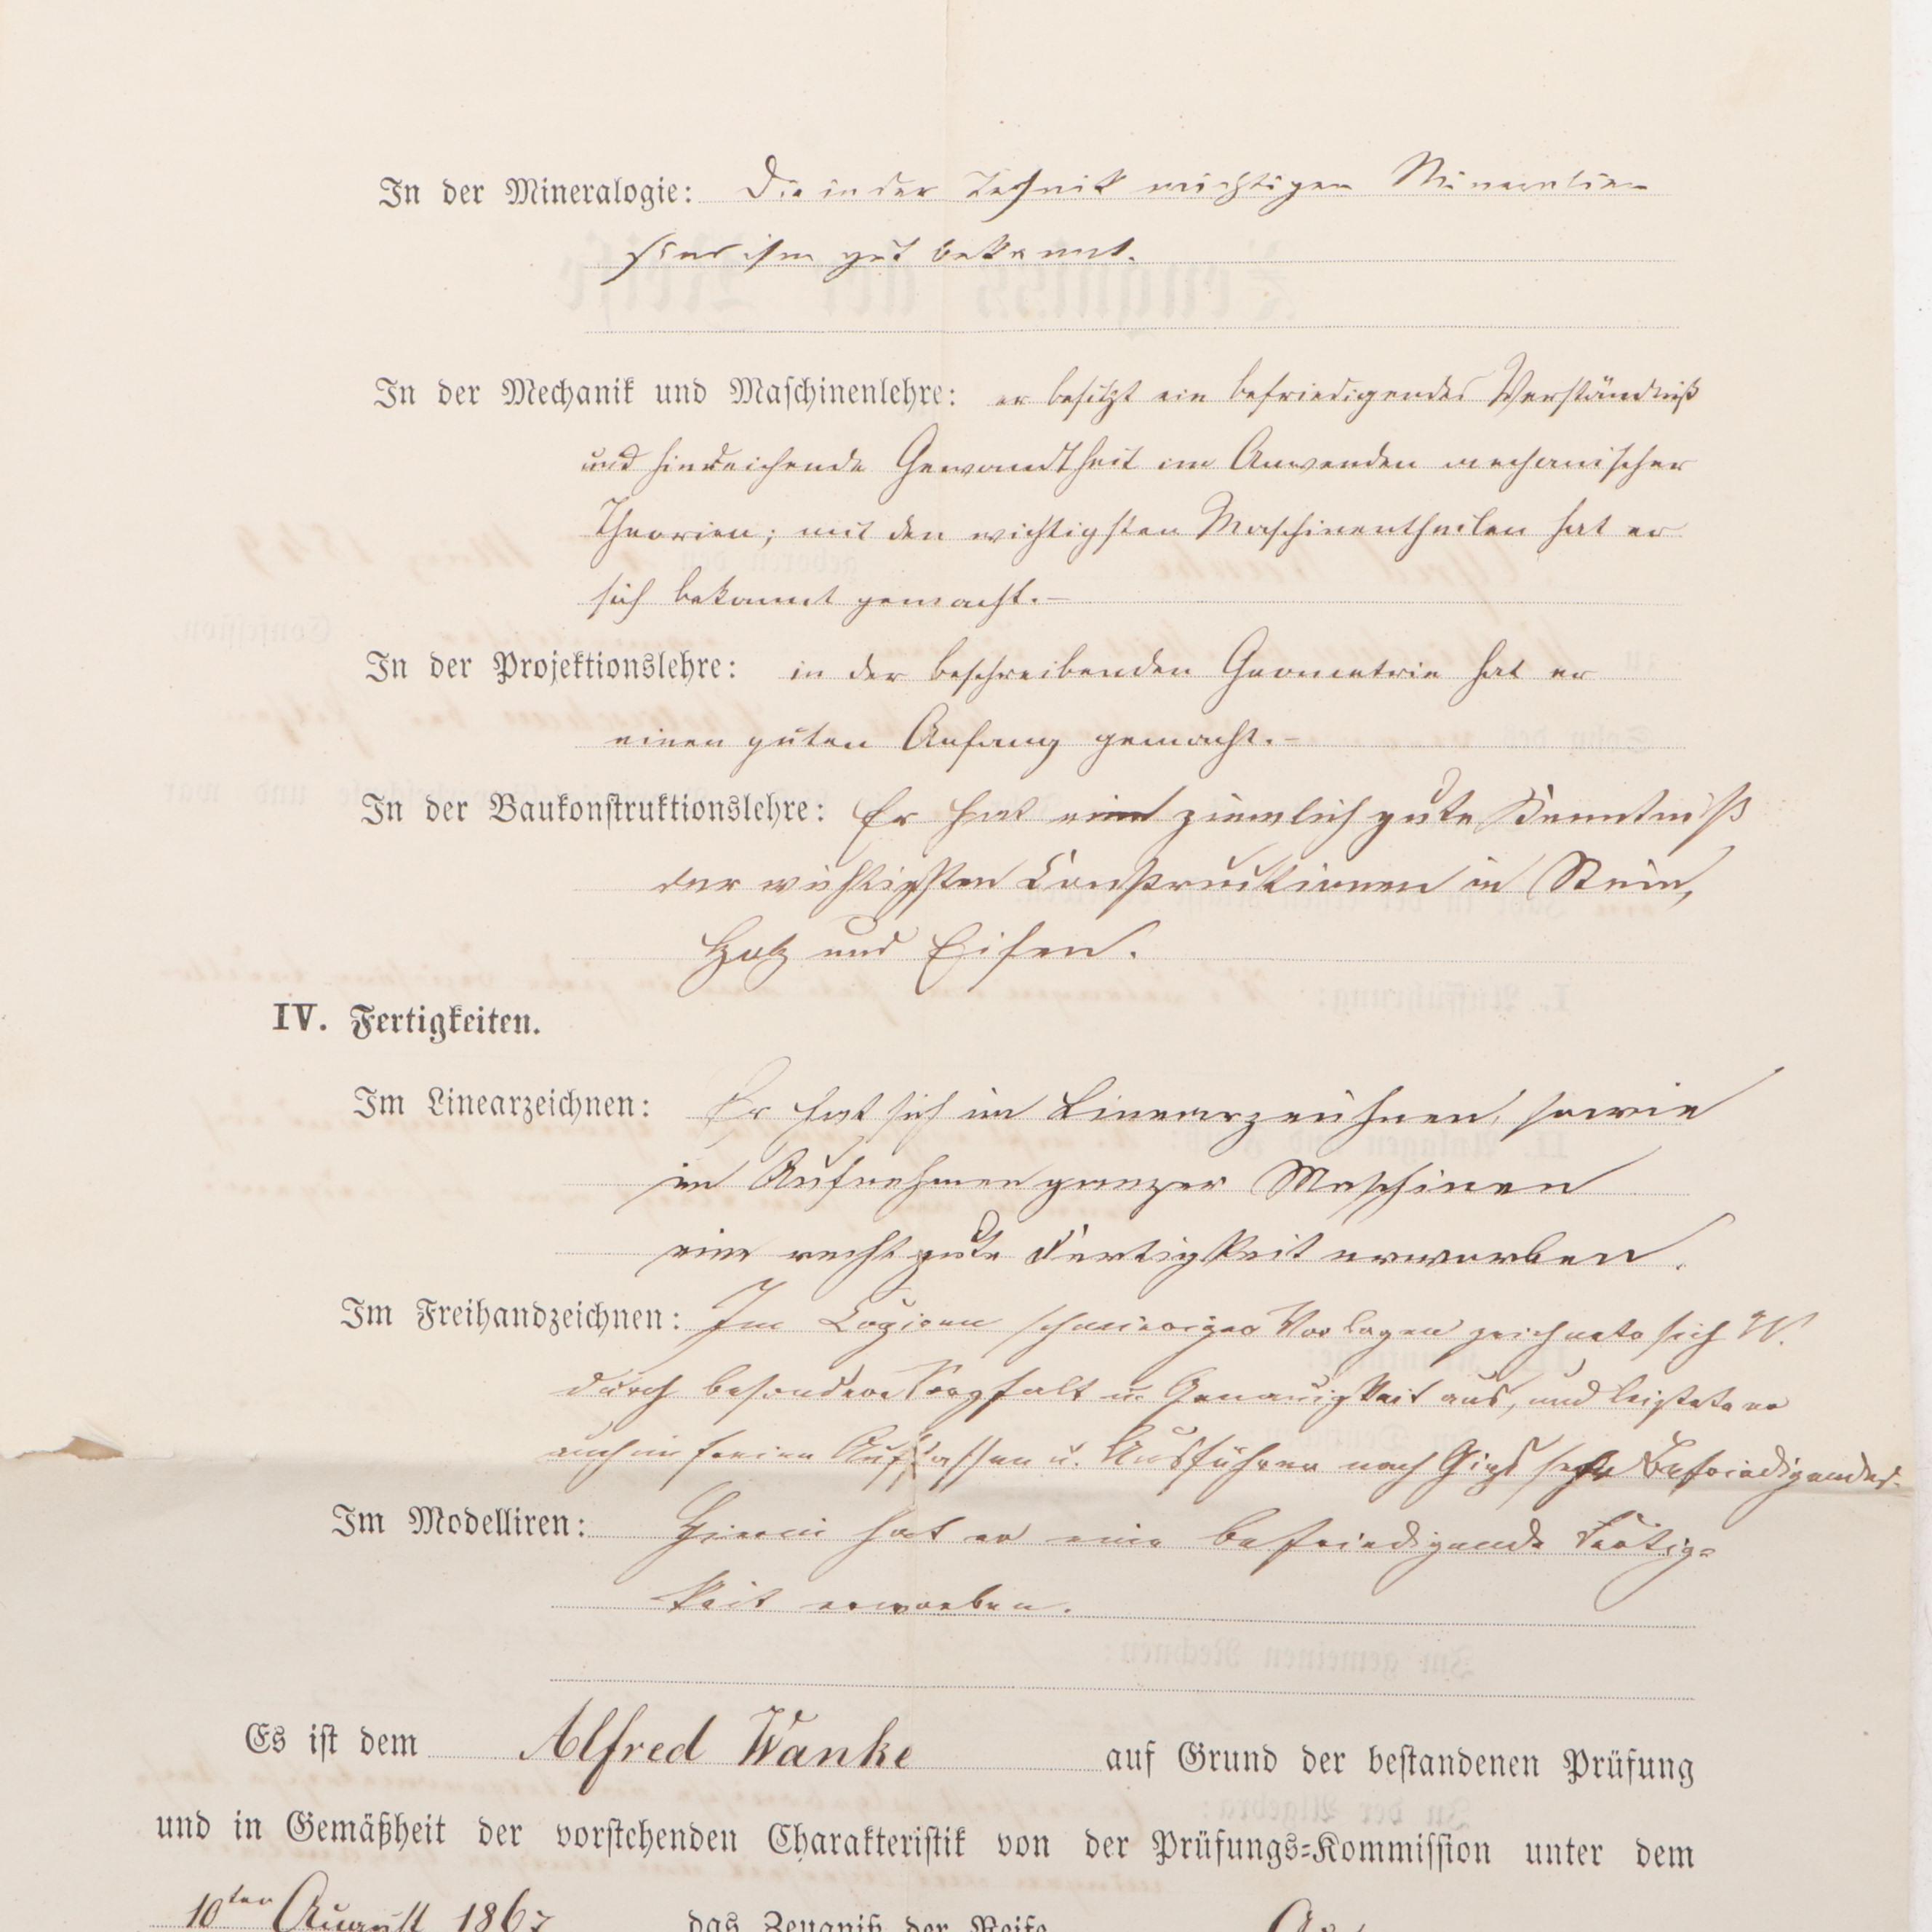 In der Mineralogie: Die in der Technik wichtigen Mineralien
sind ihm gut bekannt.
In der Mechanik und Maschinenlehre: er besitzt ein befriedigendes Verständniß
und hinreichende Gewandtheit im Anwenden mechanischer
Theorien; mit den wichtigsten Maschinentheilen hat er
sich bekannt gemacht.-
In der Projektionslehre: in der beschreibenden Geometrie hat er
einen guten Anfang gemacht.-
In der Baukonstruktionslehre: Er hat eine ziemlich gute Kenntniß
der wichtigsten Constructionen in Stein,
Holz und Eisen.
IV. Fertigkeiten.
Im Linearzeichnen: Er hat sich im Linearzeichnen, sowie
im Aufnehmen ganzer Maschinen
eine recht gute Fertigkeit erworben.
Im Freihandzeichnen: Im Copieren schwieriger Vorlagen zeichnete sich W.
durch besondere Sorgfalt u. Genauigkeit aus, und leistete er
auch im freien Auffassen u. Ausführen nach Gips sehr Befriedigendes.
Im Modelliren: Hierin hat er eine befriedigende Fertig=
keit erworben.
Es ist dem Alfred Wanke auf Grund der bestandenen Prüfung
und in Gemäßheit der vorstehenden Charakteristik von der Prüfungs=Kommission unter dem
10ten August 1867 das Zeugniß der Reife